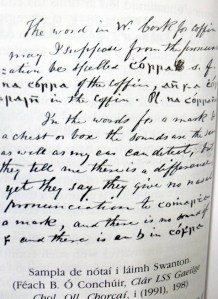 The word in W. Cork for coffin
may I suppose from the pronunci-
zation be spelled cóppa s. f.
na cóppa of the coffin,
in the coffin. Pl. na cóppaí
In the words for a mark &
a chest or box the sounds are the same
as well as my ear can detect, but
they tell me there is a difference
yet they say they give no nasal
pronunciation to
a mark, and there is no sound of
and there is a in
Sampla de nótaí i láimh Swanton
(Féach B. Ó Conchúir, Clár LSS Gaeilge
Chol. Oll. Chorcaí, i (1991), 198)